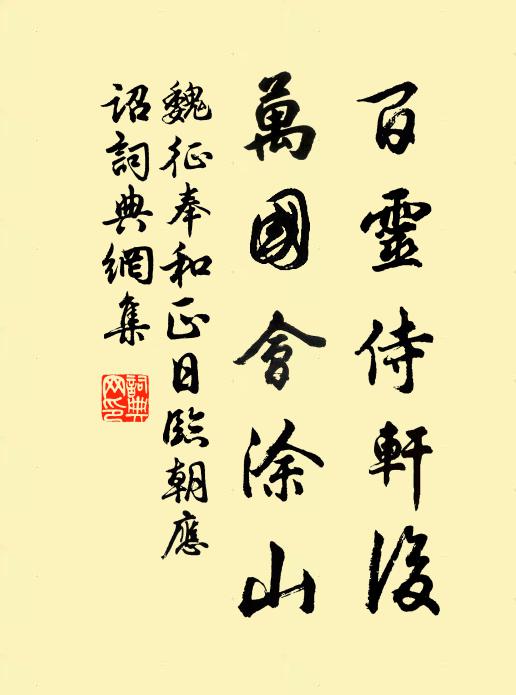 百靈侍軒後
萬國會涂山
魏征奉和正日臨朝應
詔詞典網集
詞典
网印